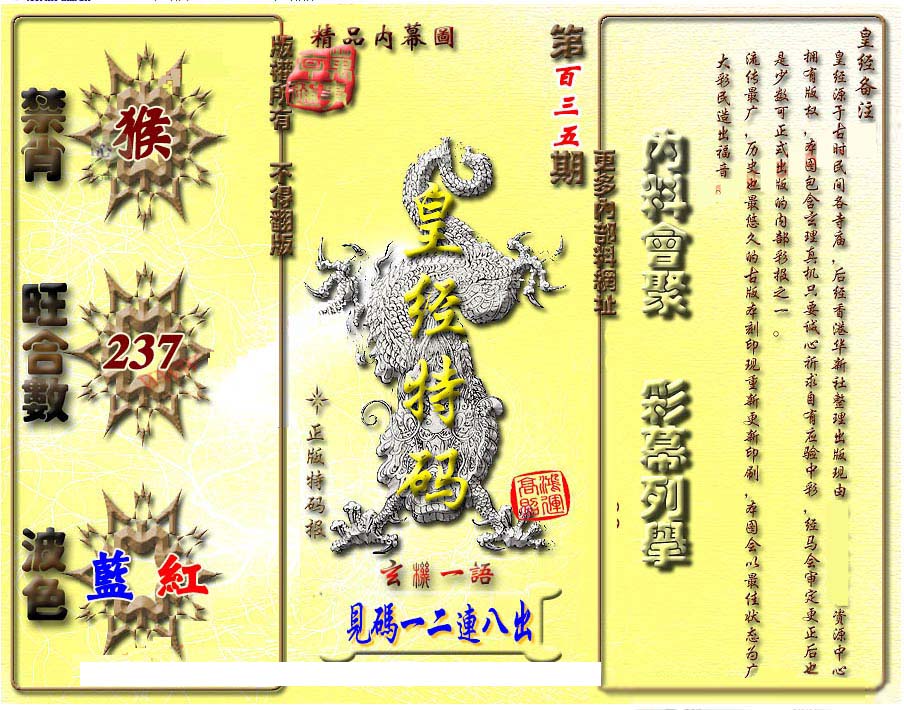 精品内幕圖
第百三五期
版權所有 不得翻版
更多內部料網址
禁肖
猴
旺合數
237
波色
藍 紅
皇经特码
正版特码报
鴻運高照
玄機一語
見碼一二連八出
內料會聚 彩幕列舉
皇经备注
皇经源于古时民间各寺庙,后经香港华新社整理出版现由 资源中心
拥有版权,本图包含玄理真机只要诚心祈求自有应验中彩,经马会审定更正后也
是少数可正式出版的内部彩报之一。
流传最广,历史也最悠久的古版本刻印现重新更新印刷,本图会以最佳状态为广
大彩民造出福音